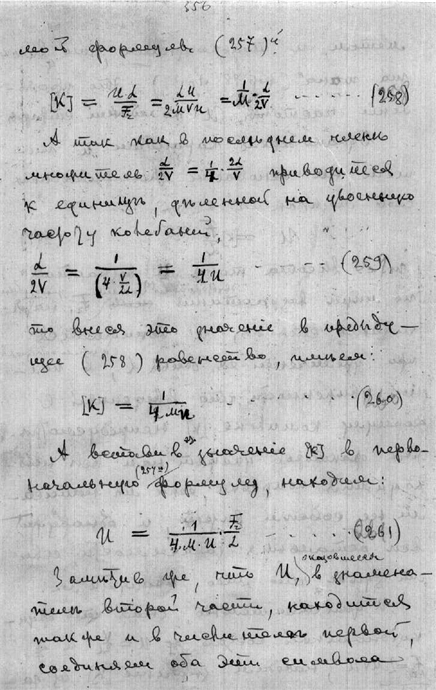 356
мой формулѣ (257)й
[K] = И L / F₂ = L И / 2 M V И = 1/M · L/2V ...... (258)
А так как в последнем члене
множитель L/2V = 1/4 · 2L/V приводится
к единице, деленной на удвоенную
частоту колебаний,
L/2V = 1/(4·V/2L) = 1/4И .... (259)
то внеся это значение в предыду-
щее (258) равенство, имеем:
[K] = 1/4.МИ ... (260)
А вставив значение [K] в перво-
начальную (257) формулу, находим:
И = 1/4.М.И · F₂/L ...... (261)
Заметив же, что И, в знамена-
теле второй части, находится
также и в числителе первой,
соединяем оба эти символа